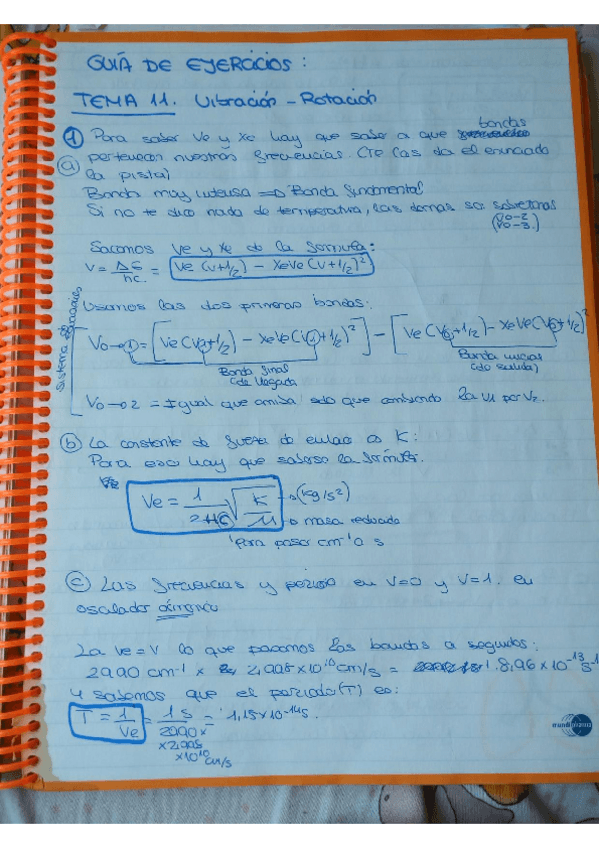 GUÍA DE EJERCICIOS:
TEMA 11. Vibración - Rotación
bandas
① Para saber Ve y Xe hay que saber a que
ⓐ pertenecen nuestras frecuencias. (Te las da el enunciado
la pista)
Banda muy intensa => Banda fundmental
Si no te dice nada de temperatura, las demas son sobretonos
(V0-2)
(V0-3)
Sacamos Ve y Xe de la formula:
V = ΔE/hc = Ve (V+1/2) - XeVe (V+1/2)²
Usamos las dos primeras bandas:
Sistema ecuaciones
V0→1 = [Ve(V1+1/2) - XeVe(V1+1/2)²] - [Ve(V0+1/2) - XeVe(V0+1/2)²
Banda final
(de llegada)
Banda inicial
(de salida)
V0→2 = Igual que arriba solo que cambiando la V1 por V2.
ⓑ La constante de fuerza de enlace es K:
Para eso hay que saberse la fórmula.
Ve = 1/2πc √K/μ → (kg/s²)
→ masa reducida
'para pasar cm⁻¹ a s
ⓒ Las frecuencias y periodo en V=0 y V=1. en
oscilador
La Ve=V lo que pasamos las bandas a segundos:
2990 cm⁻¹ x 2,998x10¹⁰ cm/s = 8,96 x 10⁻¹³ s⁻¹
Y sabemos que el periodo (T) es:
T = 1/Ve = 1 s/2990 x = 1,15x10⁻¹⁴ s.
x 2,998
x10¹⁰ cm/s